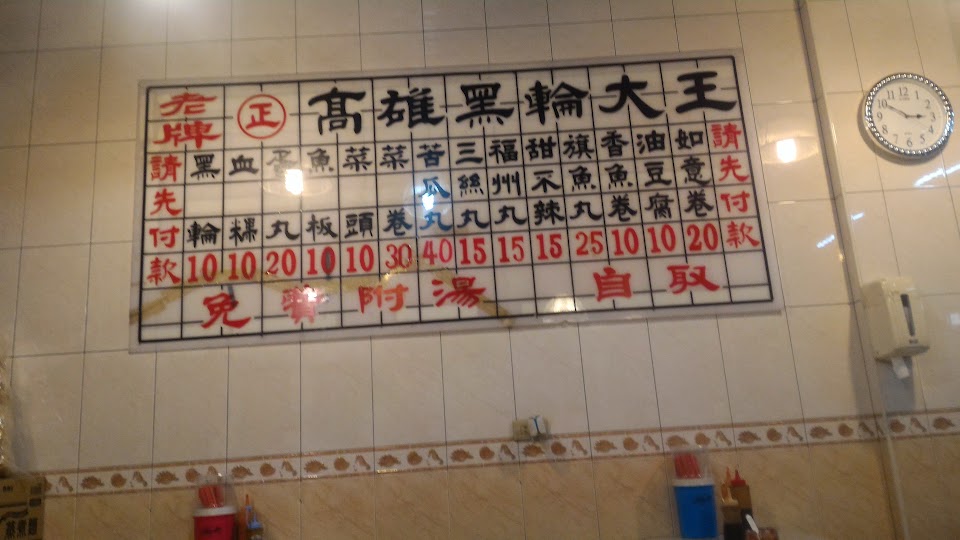 老牌 正 髙雄黑輪大王
請先付款
黑輪 10
血粿 10
蛋丸 20
魚板 10
菜頭 10
菜卷 30
苦瓜丸 40
三絲丸 15
福州丸 15
甜不辣 15
旗魚丸 25
香魚卷 10
油豆腐 10
如意卷 20
請先付款
免費附湯 自取